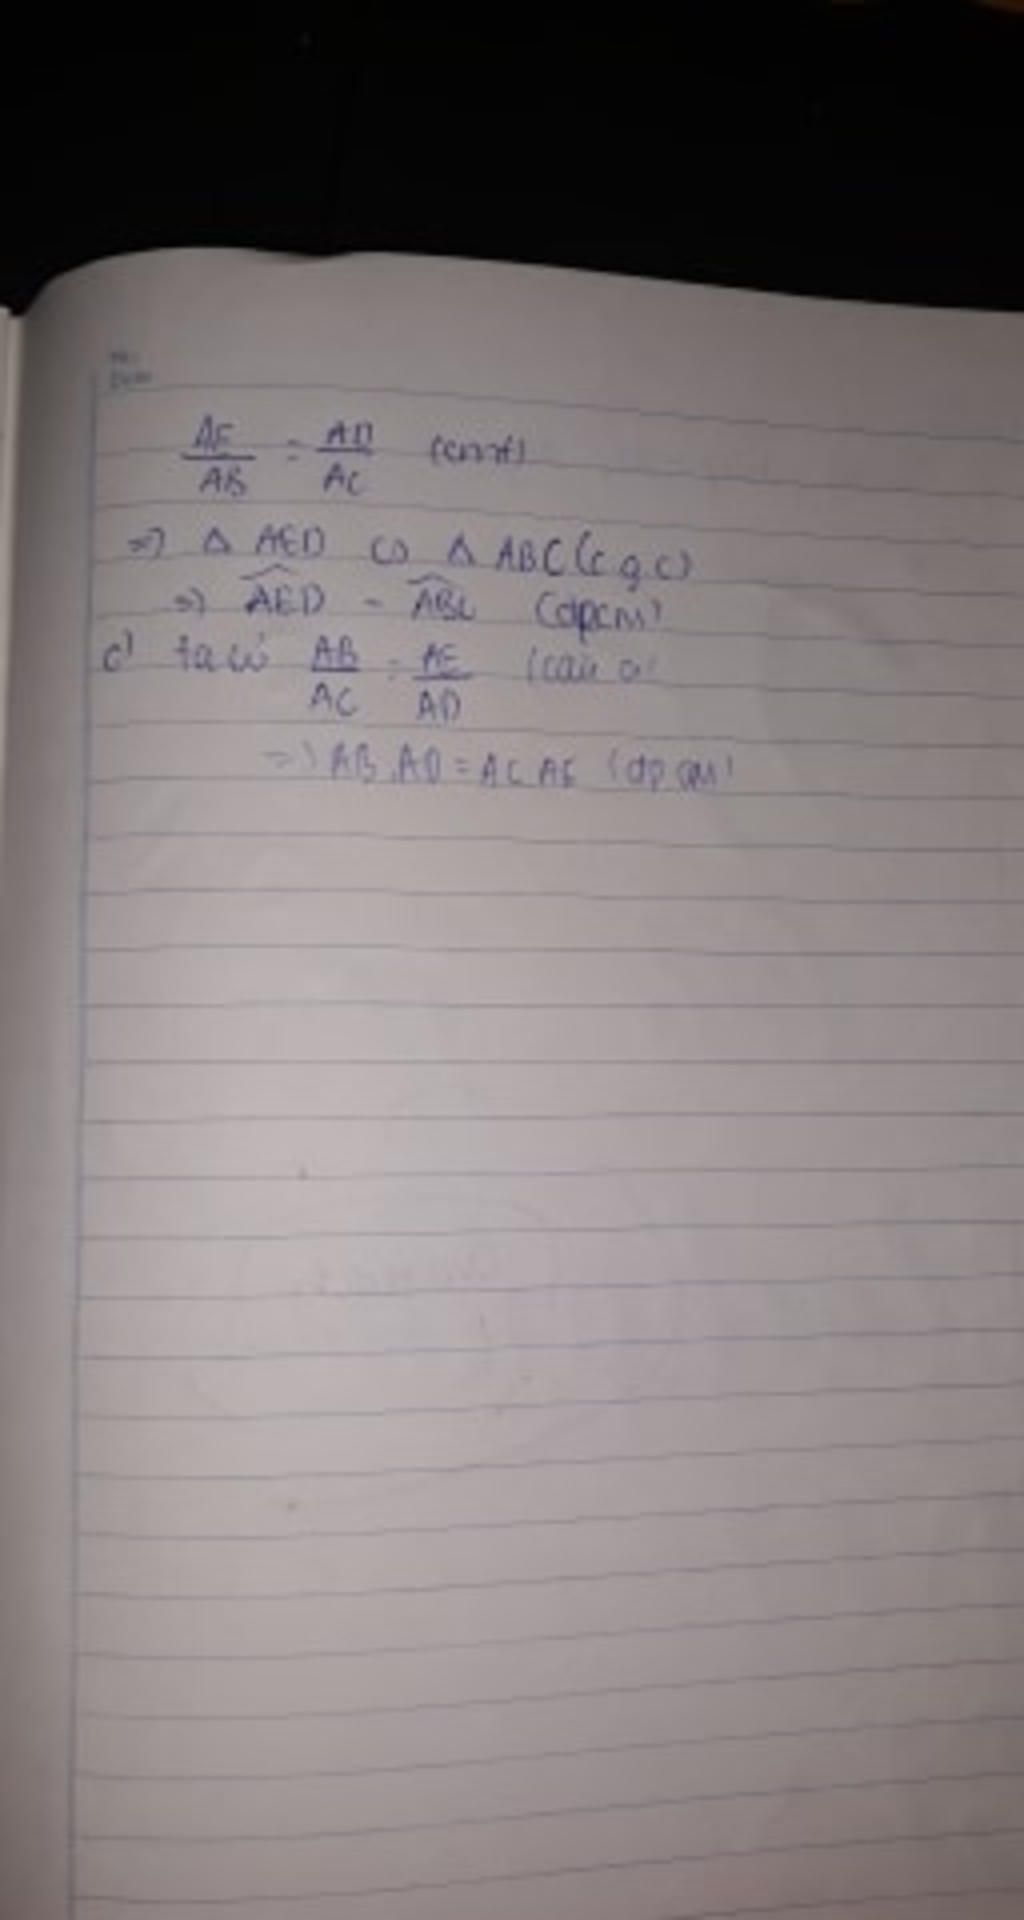 AE/AB = AD/AC (cmt)
=> Δ AED ∽ Δ ABC (c.g.c)
=> AED = ABC (dpcm)
c) ta có AB/AC = AE/AD (câu a)
=> AB.AD = AC.AE (dpcm)